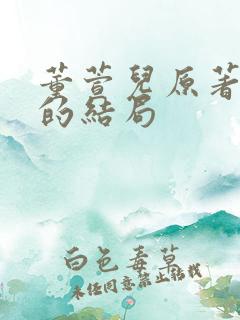 董萱兒原著
的結局
白色毒草
未經同意禁止轉載